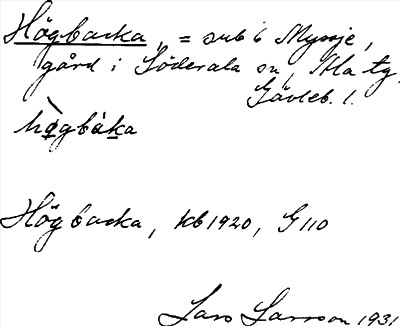 Högbacka, = sub 6 Myssje,
gård i Söderala sn, Ala tg,
Gävleb. l.
hø̀gbáka
Högbacka, kb 1920, G 110
Lars Larsson 1931